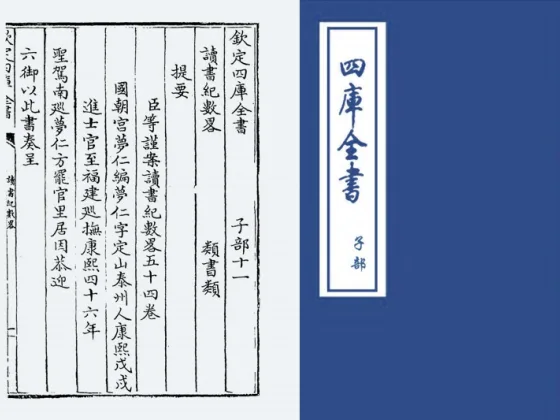 欽定四庫全書 子部十一
讀書紀數畧 類書類
提要
臣等謹案讀書紀數畧五十四卷
國朝宫夢仁編夢仁字定山泰州人康熙戊戌
進士官至福建廵撫康熙四十六年
聖駕南廵夢仁方罷官里居因恭迎
六御以此書奏呈
欽定四庫全書
讀書紀數畧
一
四庫全書
子部